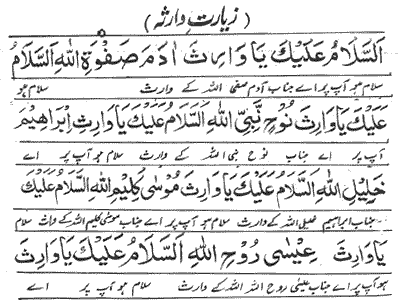 ( زیارت وارثہ )
اَلسَّلَامُ عَلَیْكَ یَا وَارِثَ اٰدَمَ صَفْوَةِ اللهِ اَلسَّلَامُ
سلام ہو آپ پر اے جناب آدم صفی اللہ کے وارث سلام ہو
عَلَیْكَ یَا وَارِثَ نُوْحٍ نَّبِیِّ اللهِ اَلسَّلَامُ عَلَیْكَ یَا وَارِثَ اِبْرَاهِیْمَ
آپ پر اے جناب نوح نبی اللہ کے وارث سلام ہو آپ پر اے
خَلِیْلِ اللهِ اَلسَّلَامُ عَلَیْكَ یَا وَارِثَ مُوْسٰی كَلِیْمِ اللهِ اَلسَّلَامُ عَلَیْكَ
جناب ابراہیم خلیل اللہ کے وارث سلام ہو آپ پر اے جناب موسٰی کلیم اللہ کے وارث سلام
یَا وَارِثَ عِیْسٰی رُوْحِ اللهِ اَلسَّلَامُ عَلَیْكَ یَا وَارِثَ
ہو آپ پر اے جناب عیسٰی روح اللہ اللہ کے وارث سلام ہو آپ پر اے